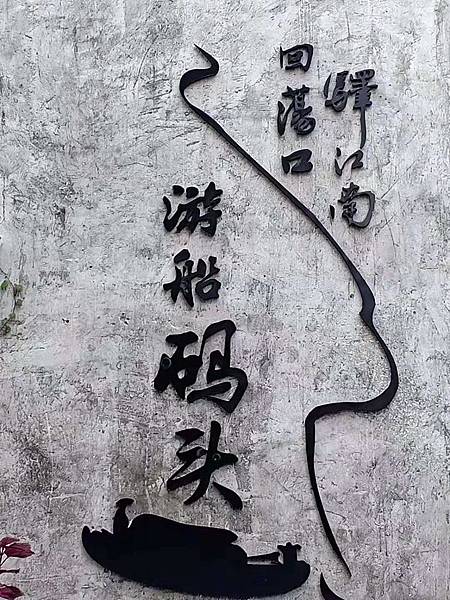 驿江南
回荡口
游船码头